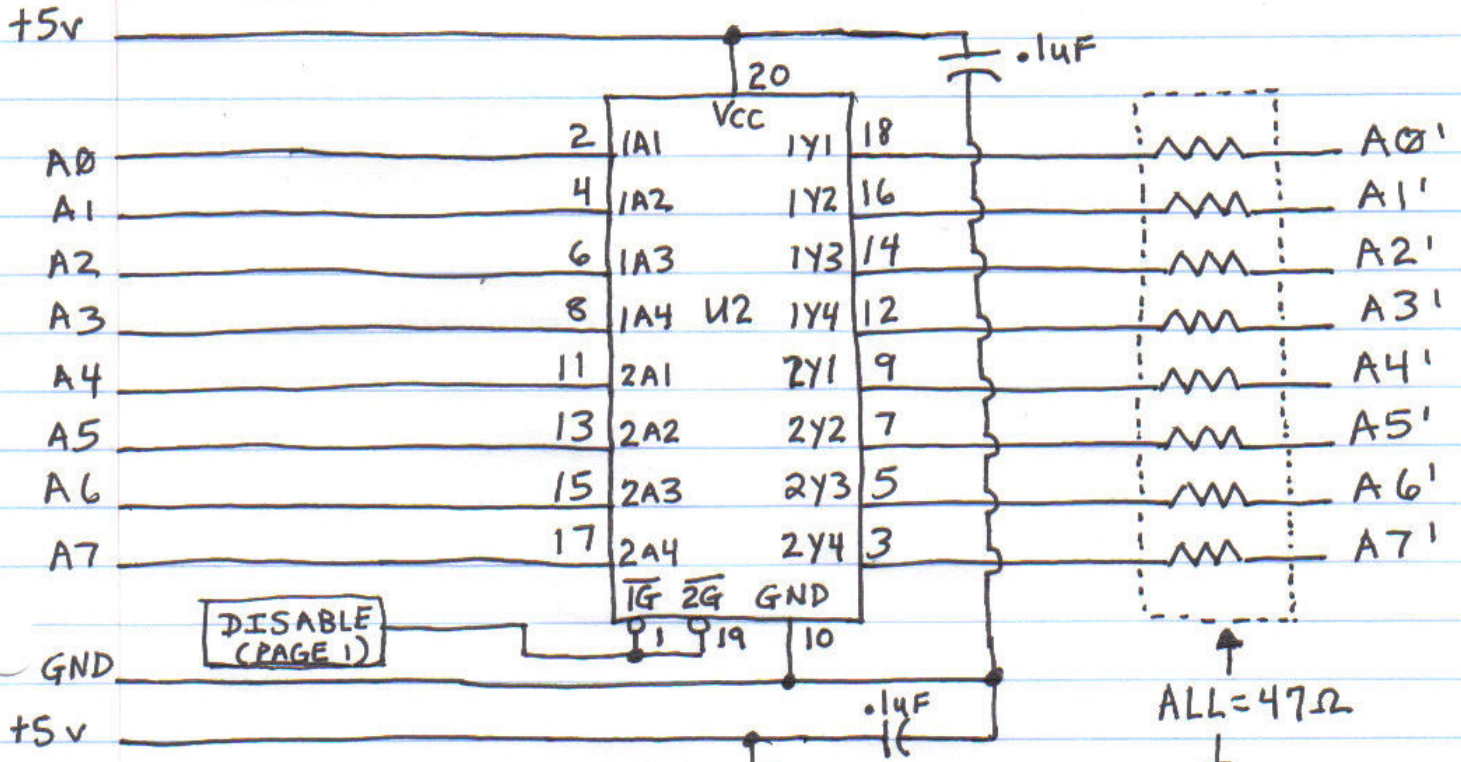 +5v
.1uF
20
VCC
A0 2 1A1 1Y1 18 A0'
A1 4 1A2 1Y2 16 A1'
A2 6 1A3 1Y3 14 A2'
A3 8 1A4 U2 1Y4 12 A3'
A4 11 2A1 2Y1 9 A4'
A5 13 2A2 2Y2 7 A5'
A6 15 2A3 2Y3 5 A6'
A7 17 2A4 2Y4 3 A7'
1G 2G GND
DISABLE 1 19 10
(PAGE 1)
GND
.1uF
ALL=47Ω
+5v